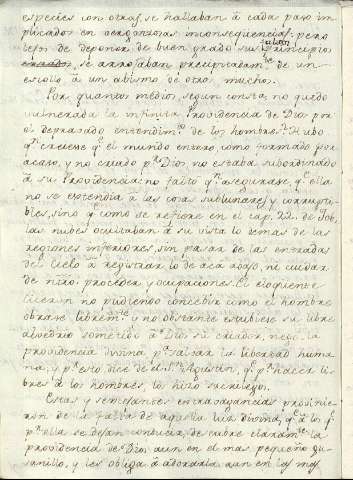 especies con otras, se hallaban à cada paso im
plicados en vergonzosas inconsequencias; pero
lejos de deponer de buen grado sus falsos principios
errados, se arrojaban precipitadam.te de un
escollo à un abismo de otros muchos.
Por quantos medios, segun consta, no quedó
vulnerada la infinita Providencia de Dios por
el depravado entendim.to de los hombres? Hubo
q.n creiese q.e el mundo entero, como formado por
acaso, y no criado p.r Dios, no estaba subordinado
à su Providencia: no faltó q.n asegurase, q.e ella
no se estendia à las cosas sublunares y corrupti-
bles, sino q.e como se refiere en el cap. 22. de Job,
las nubes ocultaban à su vista lo demas de las
regiones inferiores, sin pasar de las entradas
del Cielo à registrar lo de acà abajo, ni cuidar
de nros. procederes y ocupaciones. El eloquente
Ciceron no pudiendo concebir como el hombre
obrase librem.te y no obstante estubiese su libre
alvedrio sometido à Dios su criador, negó la
providencia divina p.r salvar la libertad huma
na; y p.r esto dice de el S.n Agustin, q.e p.r hacer li
bres à los hombres, lo hizo sacrilegos.
Estas y semejantes extravagancias provinie
ron de la falta de aquella luz divina, q.e à los q.e
p.r ella se dejan conducir, descubre claram.te la
providencia de Dios aun en el mas pequeño gu
sanillo, y les obliga à adorarla aun en los mas